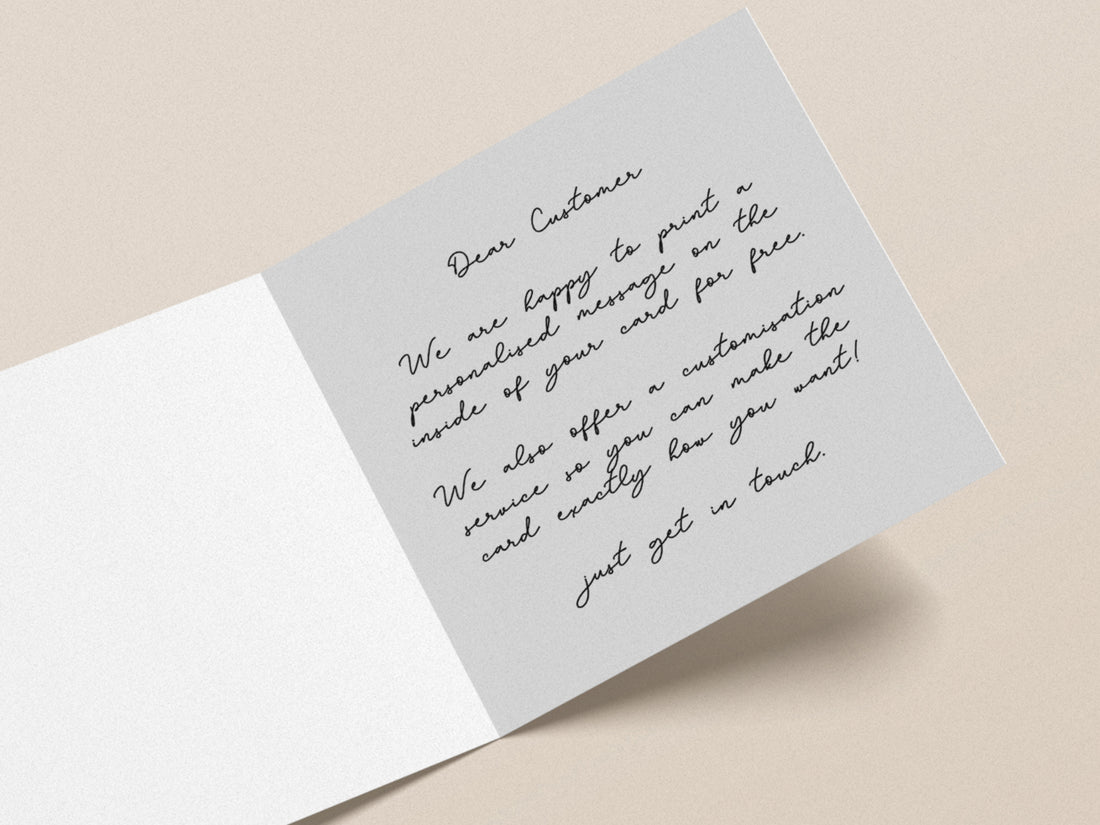 Dear Customer
We are happy to print a
personalised message on the
inside of your card for free.
We also offer a customisation
service so you can make the
card exactly how you want!
just get in touch.